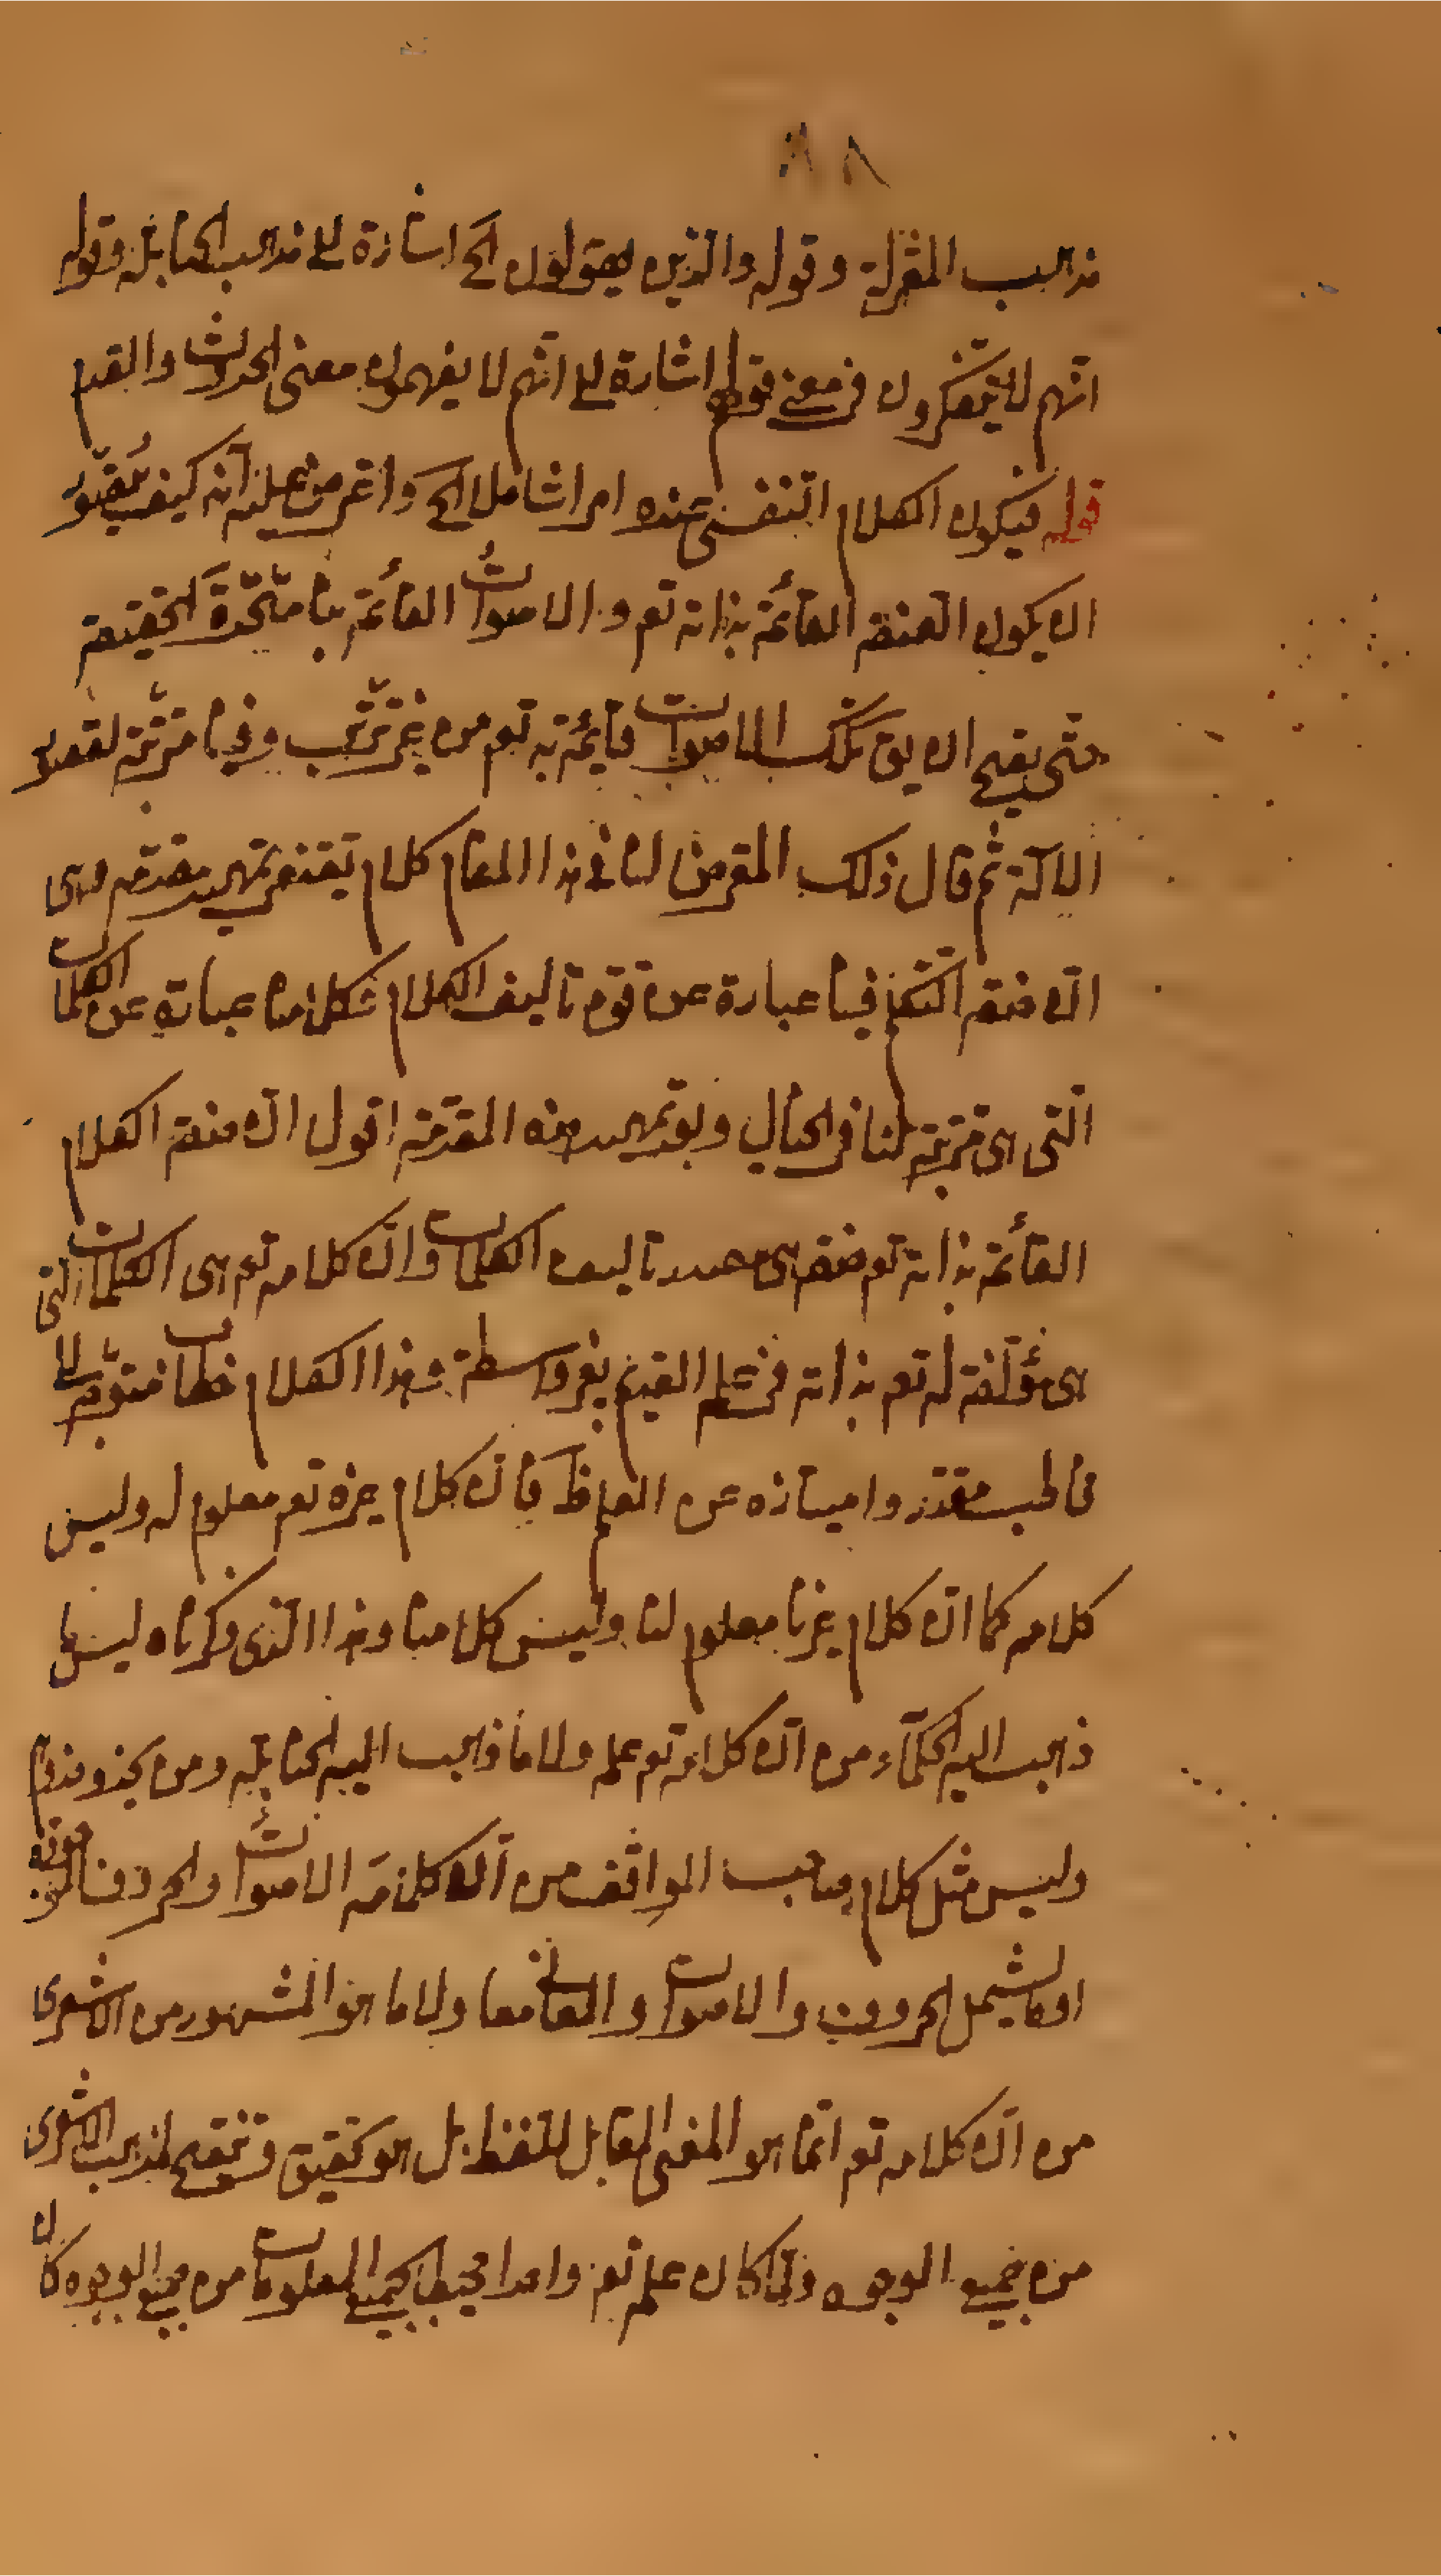 ٨٨
مذهب المعتزلة وقوله والذين يقولون الخ اشارة الى مذهب الحنابلة وقوله
انهم لا يتفكرون في معنى قولهم اشارة الى انهم لا يفهمون معنى الحدوث والقدم
قوله فيكون الكلام النفسي عنده امرا شاملا الخ واعترض عليه انه كيف يتصور
ان يكون الصفة القائمة بذاته تعم والاصوات القائمة بنا متحدة الحقيقة
حتى يصح ان يق تلك الاصوات قائمة به تعم من غير ترتب وفينا مترتبة لقصور
الآلة ثم قال ذلك المعترض لنا في هذا المقام كلام يقتضي تمهيد مقدمه وهي
ان صفة التكلم فينا عبارة عن قوة تاليف الكلام فكلامنا عبارة عن الكلمات
التي هي مرتبة لنا في الخيال وبعد تمهيد هذه المقدمة اقول ان صفة الكلام
القائمة بذاته تعم صفة هي مصدر تاليف الكلمات وان كلامه تعم هي الكلمات التي
هي مؤلفة له تعم بذاته في علمه القديم بغير واسطة وهذا الكلام خطاب متوجه الى
مخاطب مقدر وامتيازه عن العلم ظ فان كلام غيره تعم معلوم له وليس
كلامه كما ان كلام غيرنا معلوم لنا وليس كلامنا وهذا الذي ذكرناه ليس ما
ذهب اليه الحكماء من ان كلامه تعم علمه ولا ما ذهب اليه الحنابلة ومن يحذو حذوهم
وليس مثل كلام صاحب المواقف من ان كلامه الاصوات والحروف
او ما يشمل الحروف والاصوات والمعاني معا ولا ما هو المشهور من الاشعري
من ان كلامه تعم انما هو المعنى المقابل للفظ بل هو تحقيق وتنقيح لمذهب الاشعري
من جميع الوجوه ولما كان علمه تعم واحدا محيطا بجميع المعلومات من جميع الوجوه كان